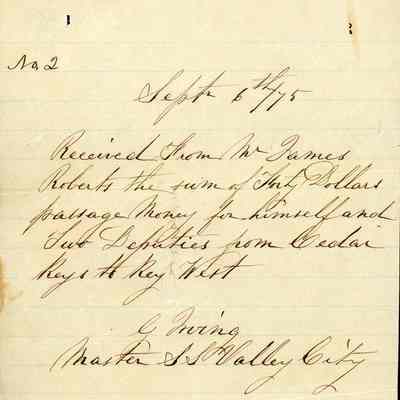 No 2
Septr 6th/75
Received From Mr James
Roberts the sum of Forty Dollars
passage Money for himself and
Two Deputies from Cedar
Keys to Key West
C Irving
Master S.S. Valley City